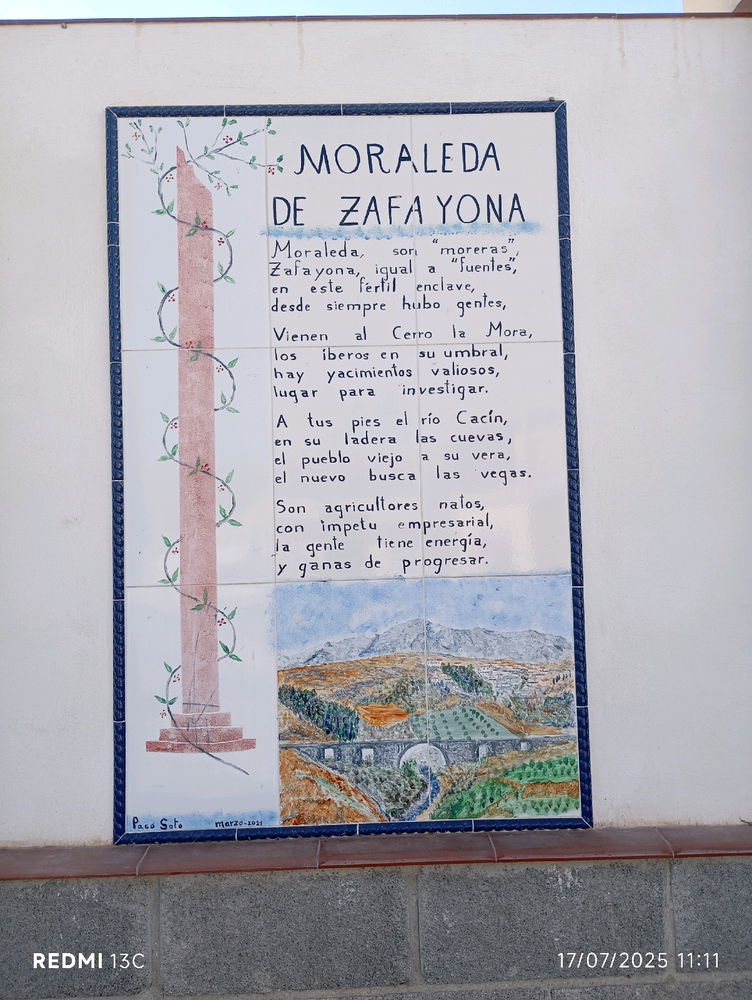 MORALEDA
DE ZAFAYONA
Moraleda, son "moreras",
Zafayona, igual a "fuentes",
en este fértil enclave,
desde siempre hubo gentes,
Vienen al Cerro la Mora,
los íberos en su umbral,
hay yacimientos valiosos,
lugar para investigar.
A tus pies el río Cacín,
en su ladera las cuevas,
el pueblo viejo a su vera,
el nuevo busca las vegas.
Son agricultores natos,
con ímpetu empresarial,
la gente tiene energía,
y ganas de progresar.
Paco Soto marzo-2021
REDMI 13C
17/07/2025 11:11